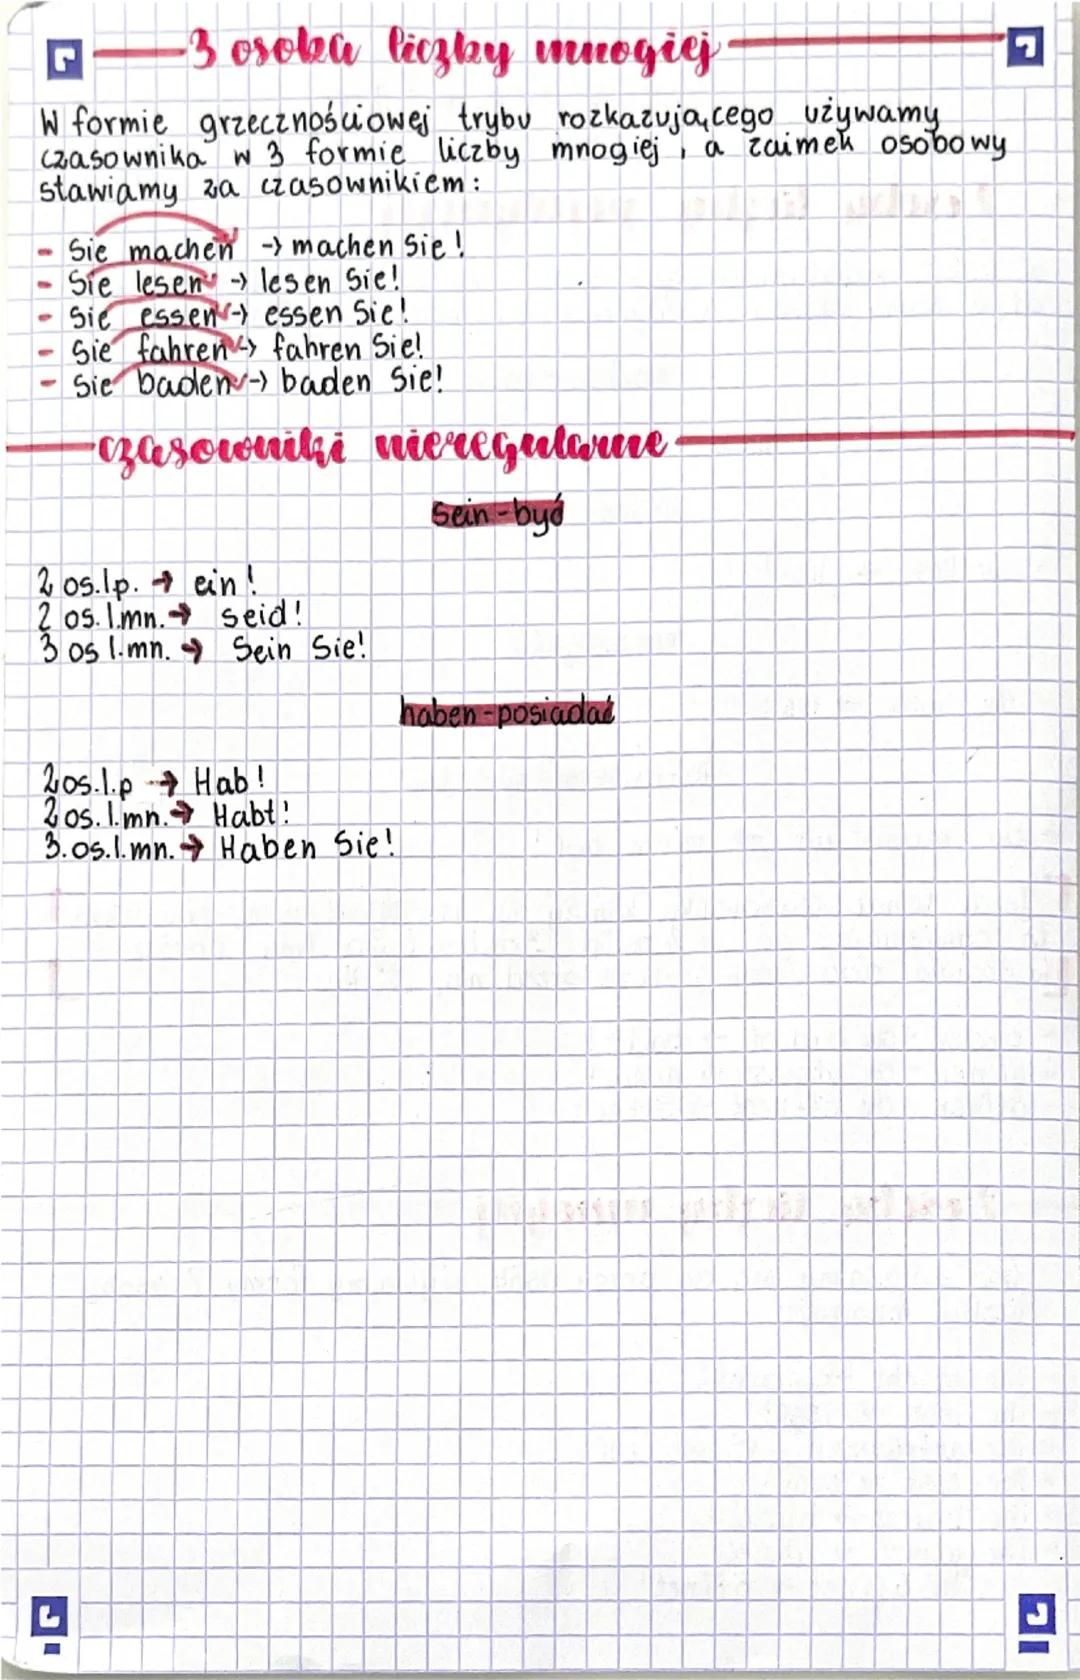 3 osoba liczby mnogiej
W formie grzecznościowej trybu rozkazującego używamy
czasownika w 3 formie liczby mnogiej, a zaimek osobowy
stawiamy za czasownikiem:
- Sie machen -> machen Sie!
- Sie lesen -> lesen Sie!
- Sie essen -> essen Sie!
- Sie fahren -> fahren Sie!
- Sie baden -> baden Sie!
czasowniki nieregularne
Sein - być
2 os.lp. → ein!
2 os. l.mn. → seid!
3 os l.mn. → Sein Sie!
haben - posiadać
2os.l.p → Hab!
2os. l.mn. → Habt!
3.os.l.mn. → Haben Sie!